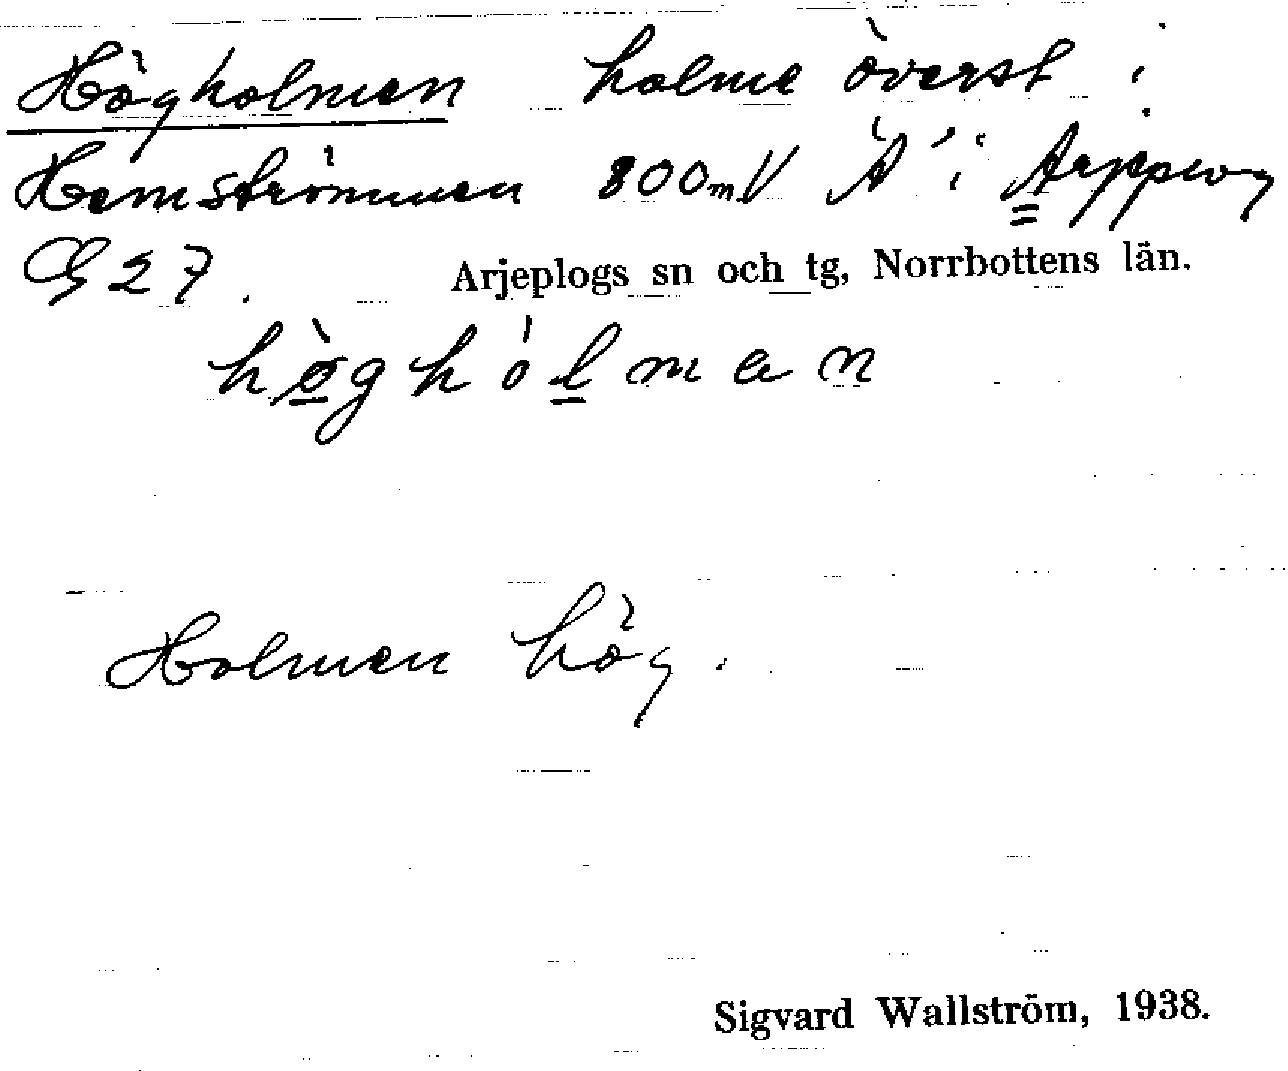 Högholmen holme överst i
Hemströmmen 800m V Ä i Arjeplog
G 27. Arjeplogs sn och tg, Norrbottens län.
hö̀ghólmen
Holmen hög.
Sigvard Wallström, 1938.